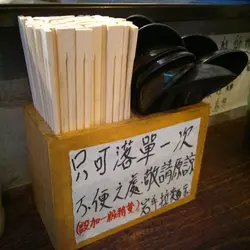 只可落單一次
不便之處敬請原諒
(設加一服務費)岩牛拉麵店